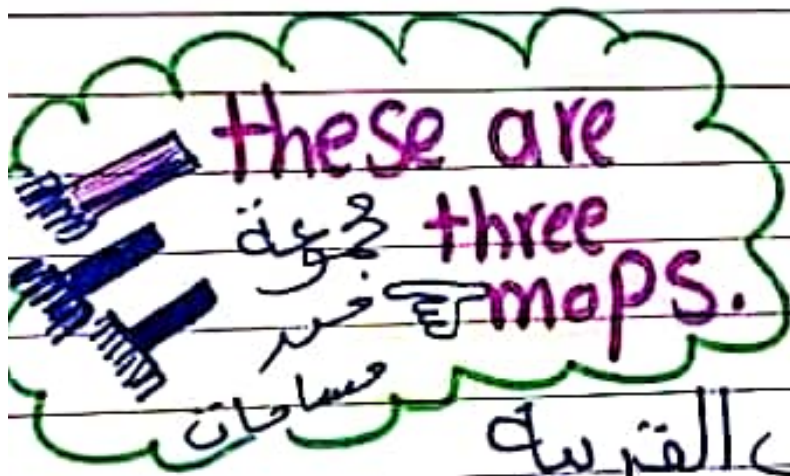 these are
three
mops.
مجموعة
خبر
مساحات
القريبة